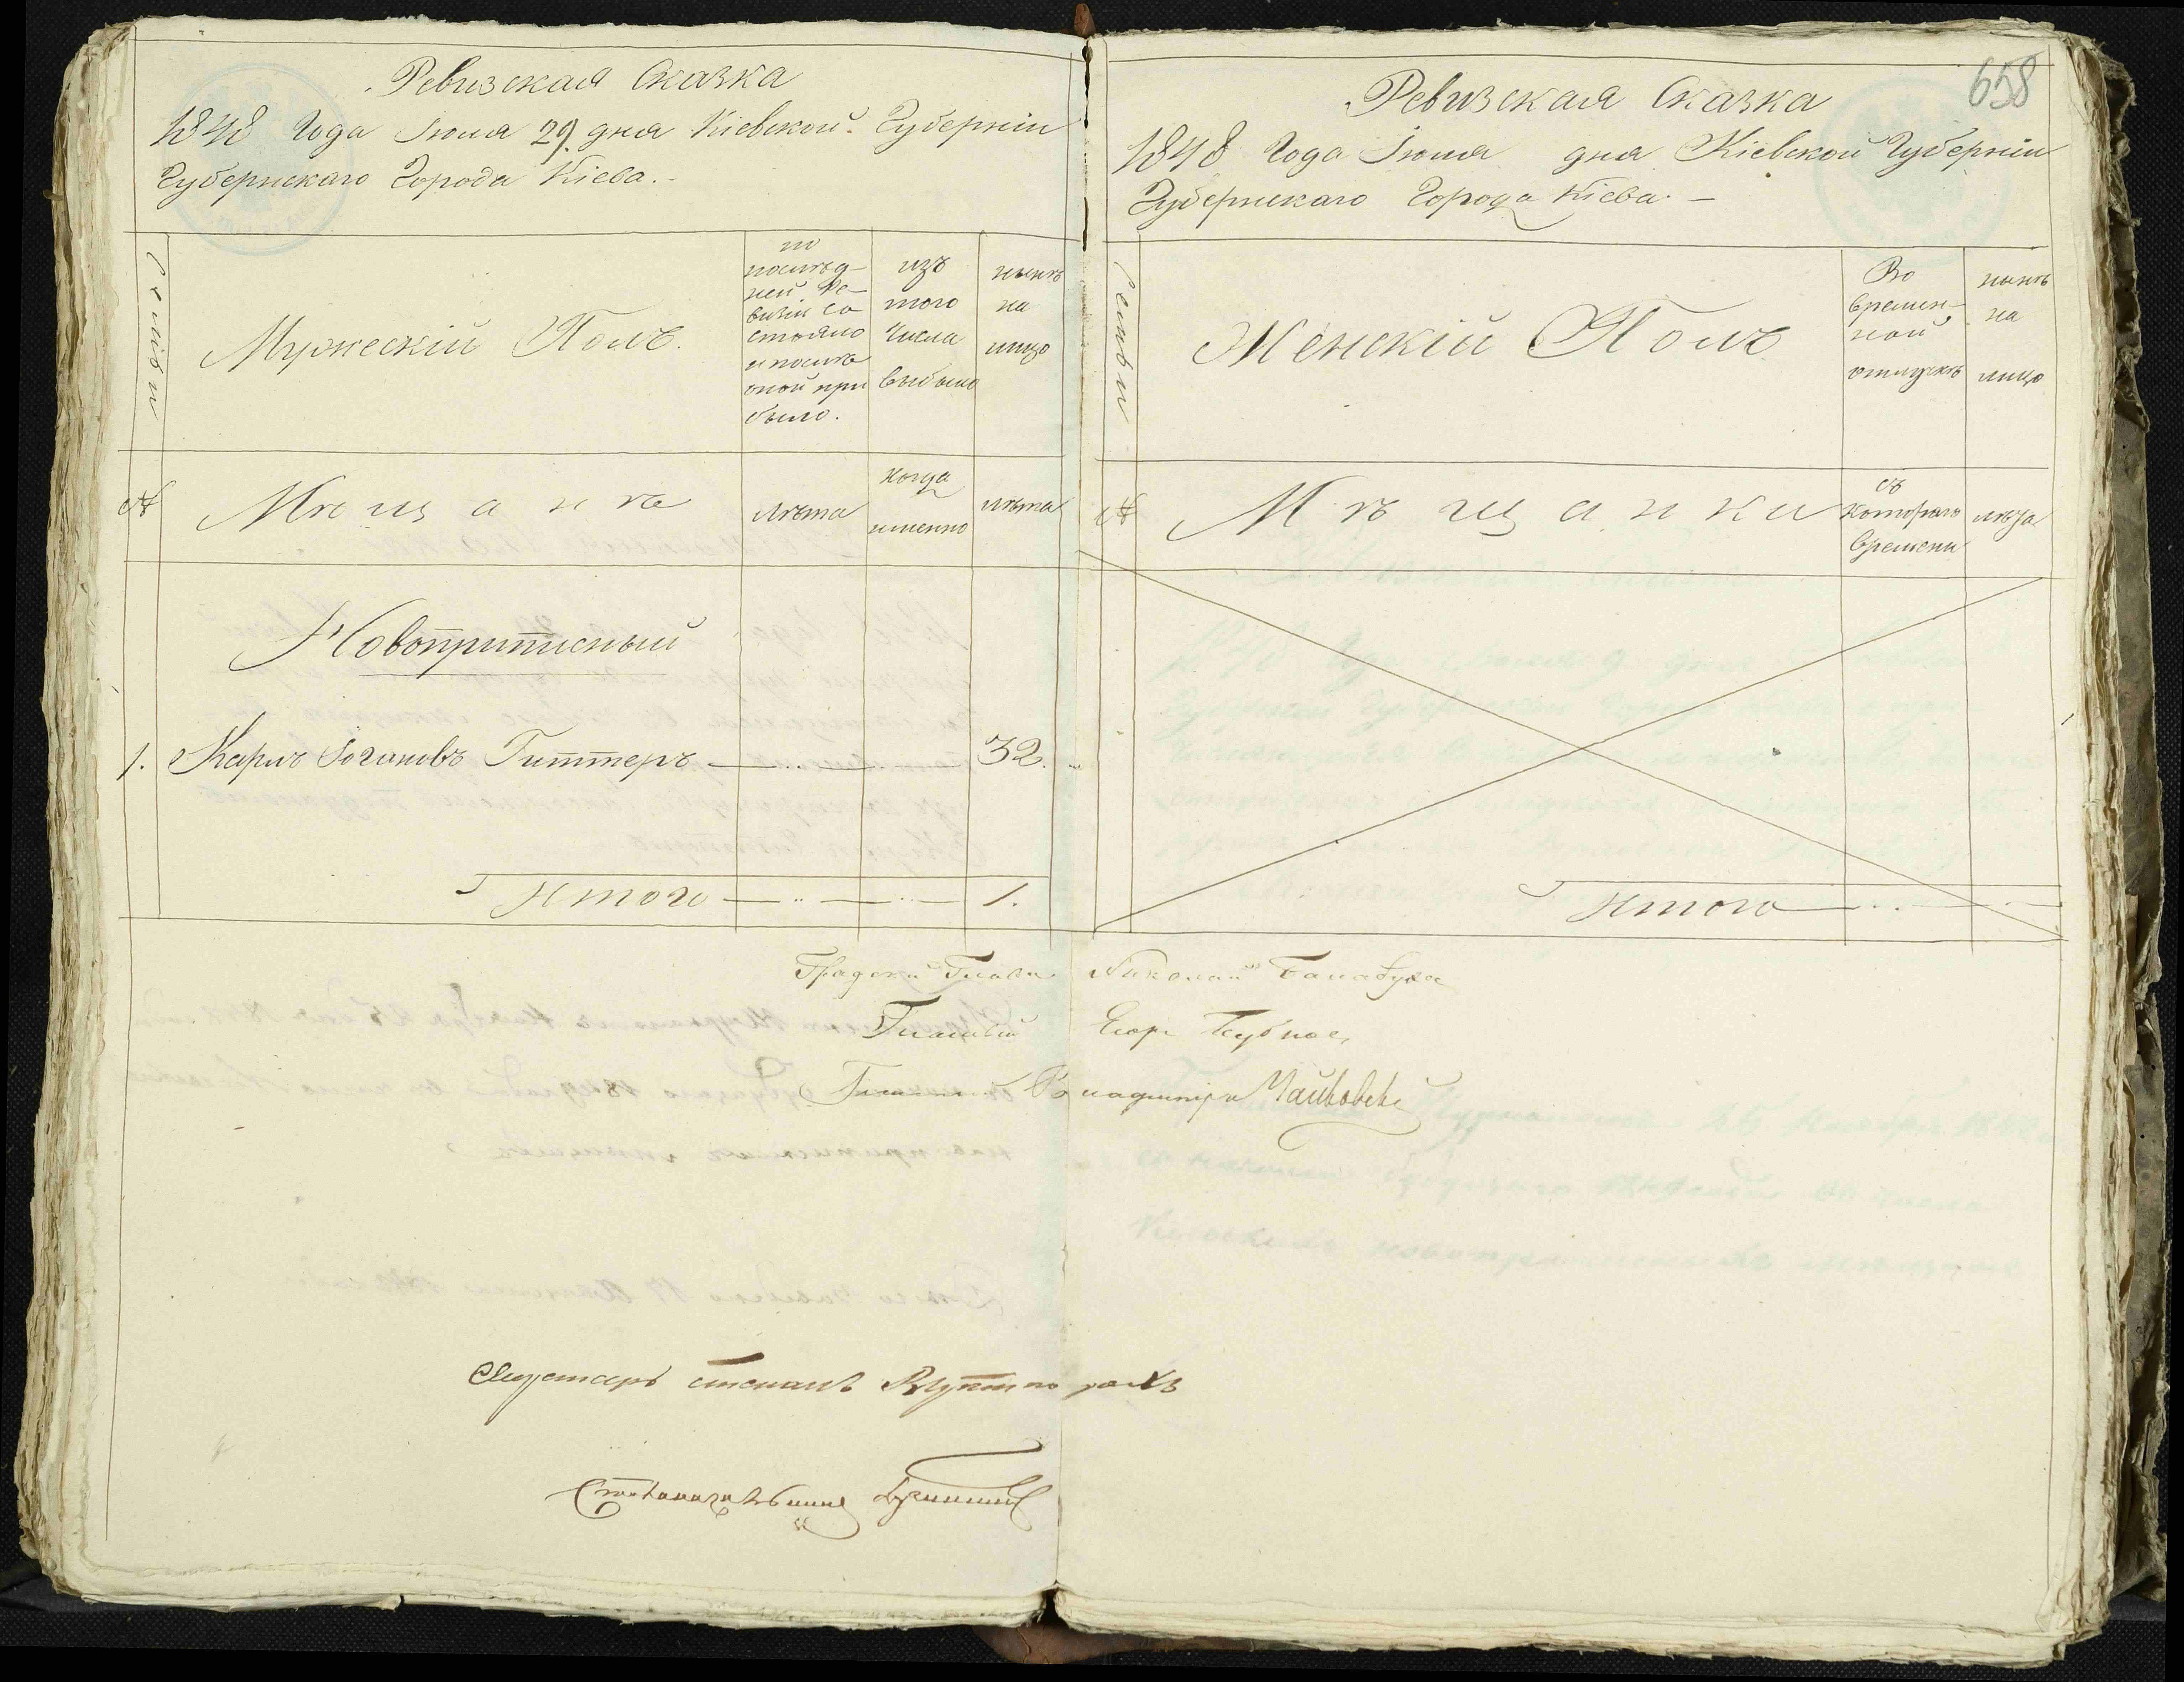 Ревизская Сказка
1848 Года Июля 29. дня Кіевской Губерніи
Губернскаго Города Кіева.
Семьи
Мужескій Полъ.
по
послѣд-
ней Ре-
визіи со
стояло
и послѣ
оной при
было.
изъ
того
числа
выбыло
нынѣ
на
лицо
№
Мѣщане
лѣта
когда
именно
лѣта
Новоприписный
1. Карлъ Іогановъ Гиттеръ 32.
Итого 1.
658
Ревизская Сказка
1848 Года Июля дня Кіевской Губерніи
Губернскаго Города Кіева. —
Семьи
Женскій Полъ
Во
времен-
ной
отлучкѣ
нынѣ
на
лицо
№
Мѣщанки
съ
котораго
времени
лѣта
Итого
Градскій Глава Николай Балабуха
Гласный Егор
Гласный Владимиръ Чайковскі